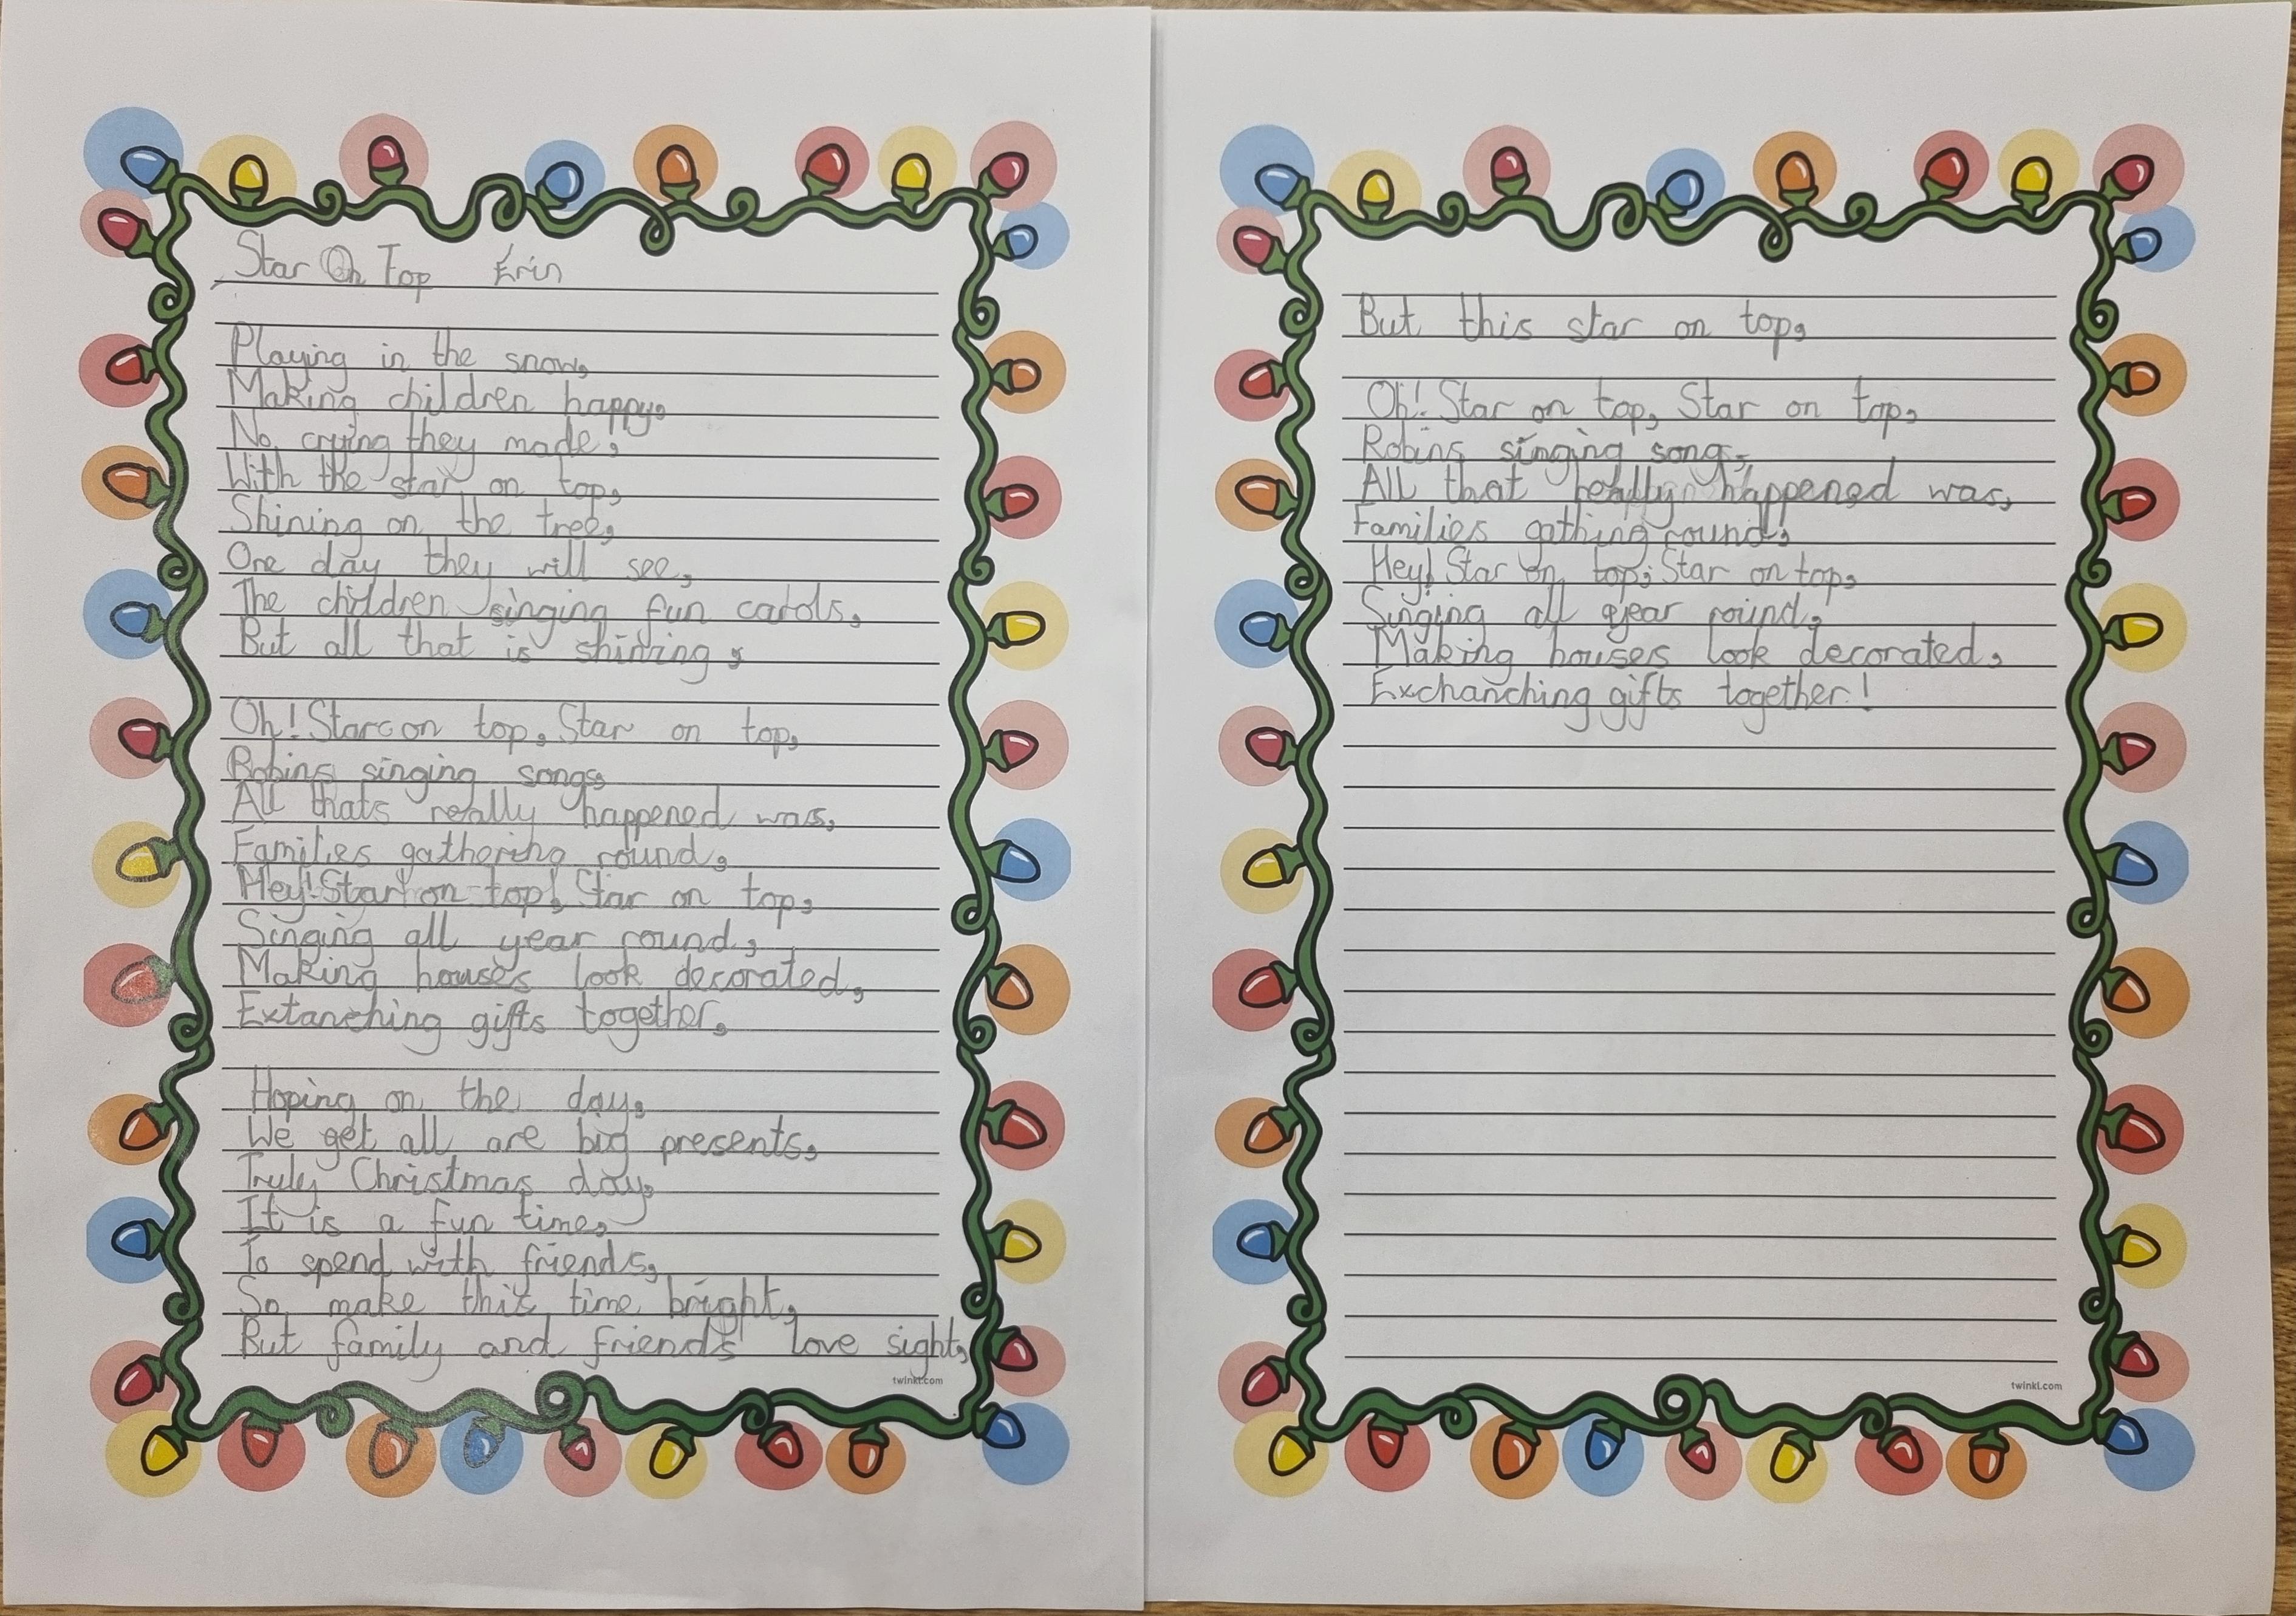 Star On Top Erin
Playing in the snow,
Making children happy,
No crying they made,
With the star on top,
Shining on the tree,
One day they will see,
The children singing fun carols,
But all that is shining,
Oh! Star on top, Star on top,
Robins singing songs,
All thats really happened was,
Families gathering round,
Hey! Star on top! Star on top,
Singing all year round,
Making houses look decorated,
Extanching gifts together,
Hoping on the day,
We get all are big presents,
Truly Christmas day,
It is a fun time,
To spend with friends,
So make this time bright,
But family and friends love sight,
twinkl.com
But this star on top,
Oh! Star on top, Star on top,
Robins singing song,
All that really happened was,
Families gathing round,
Hey! Star on top, Star on top,
Singing all year round,
Making houses look decorated,
Exchanching gifts together!
twinkl.com